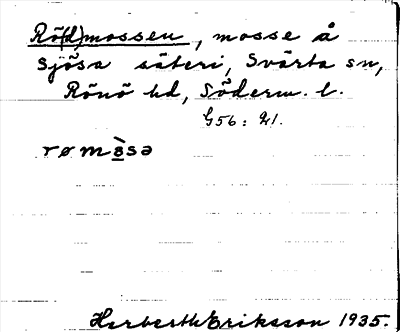 Rö(d)mossen, mosse å
Sjösa säteri, Svärta sn,
Rönö hd, Söderm. l.
G56: 21.
Herberth Eriksson 1935.